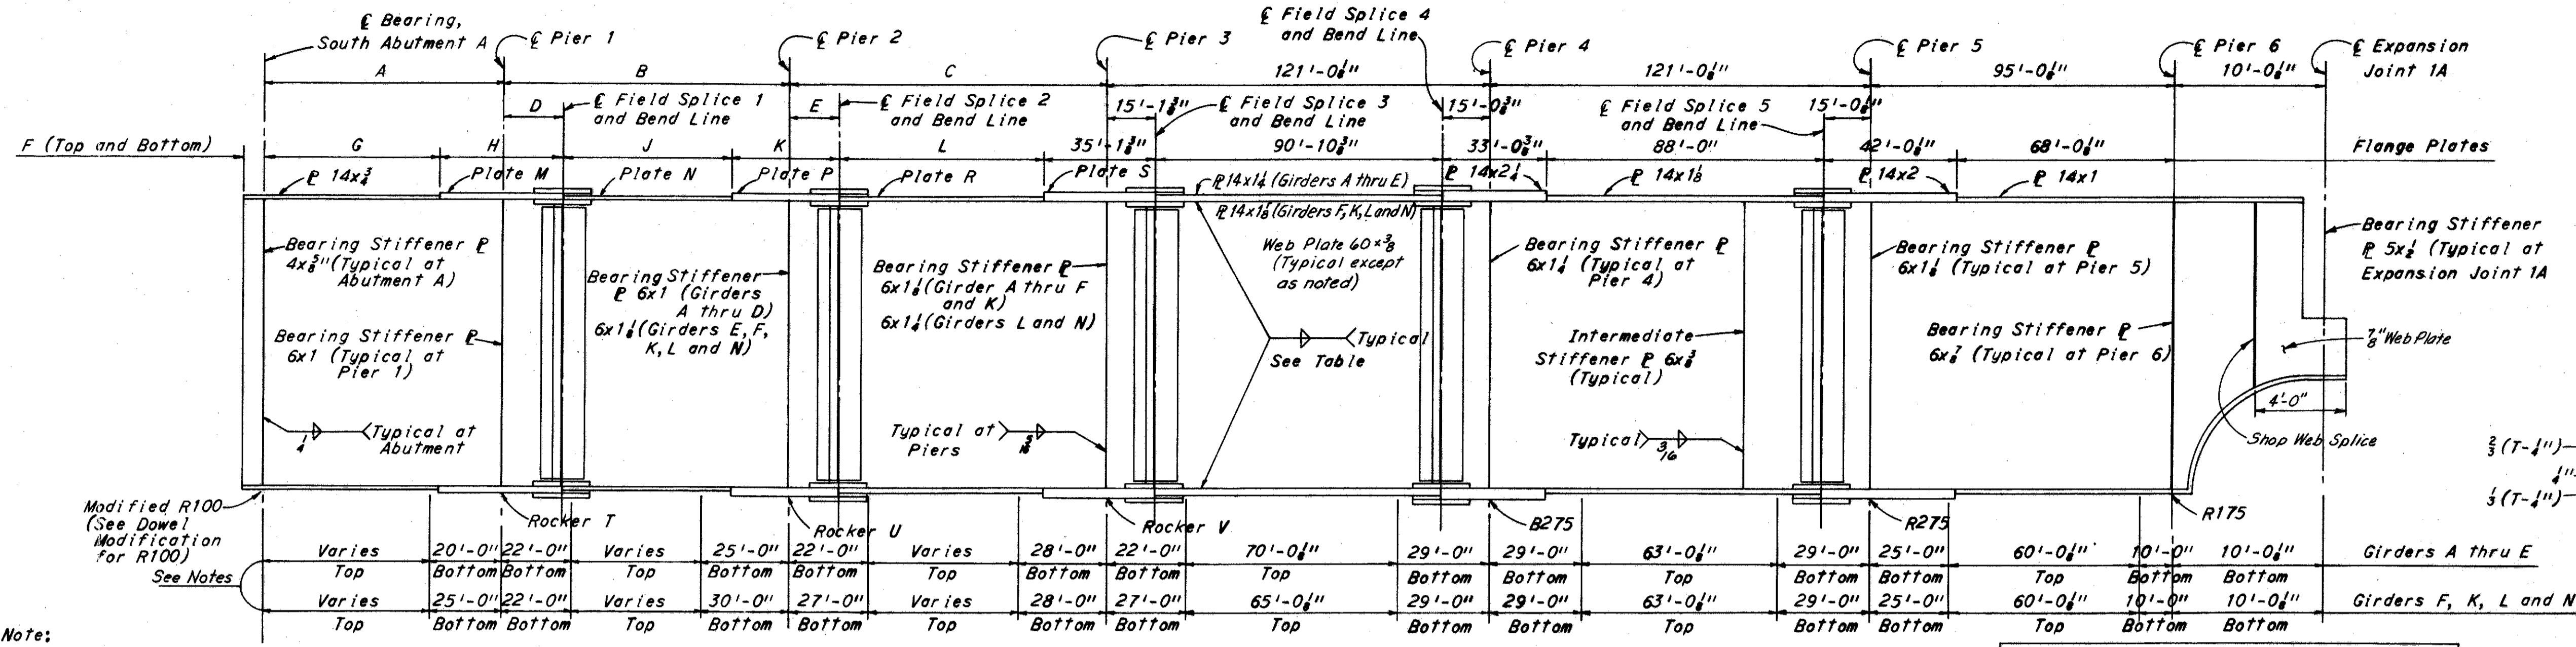 ℄ Bearing,
South Abutment A
℄ Pier 1
℄ Pier 2
℄ Pier 3
℄ Field Splice 4
and Bend Line
℄ Pier 4
℄ Pier 5
℄ Pier 6
℄ Expansion
Joint 1A
A
B
C
121'-0⅛"
121'-0⅛"
95'-0⅛"
10'-0⅛"
D
℄ Field Splice 1
and Bend Line
E
℄ Field Splice 2
and Bend Line
15'-1⅜"
℄ Field Splice 3
and Bend Line
15'-0⅜"
℄ Field Splice 5
and Bend Line
15'-0⅛"
F (Top and Bottom)
G
H
J
K
L
35'-1⅜"
90'-10⅜"
33'-0⅜"
88'-0"
42'-0⅛"
68'-0⅛"
Flange Plates
℄ 14x¾
Plate M
Plate N
Plate P
Plate R
Plate S
℄ 14x1¼ (Girders A thru E)
℄ 14x1⅛ (Girders F, K, L and N)
℄ 14x2¼
℄ 14x1⅛
℄ 14x2
℄ 14x1
Bearing Stiffener ℄
4x⅝" (Typical at
Abutment A)
Bearing Stiffener ℄
6x1 (Typical at
Pier 1)
Bearing Stiffener
℄ 6x1 (Girders
A thru D)
6x1⅛ (Girders E, F,
K, L and N)
Bearing Stiffener ℄
6x1⅛ (Girder A thru F
and K)
6x1¼ (Girders L and N)
Web Plate 60x⅜
(Typical except
as noted)
Typical
See Table
Bearing Stiffener ℄
6x1¼ (Typical at
Pier 4)
Intermediate
Stiffener ℄ 6x⅜
(Typical)
Bearing Stiffener ℄
6x1⅛ (Typical at Pier 5)
Bearing Stiffener ℄
6x⅞ (Typical at Pier 6)
Bearing Stiffener
℄ 5x½ (Typical at
Expansion Joint 1A
⅞" Web Plate
4'-0"
Shop Web Splice
¼
Typical at
Abutment
Typical at
Piers
5/16
Typical
3/16
⅔ (T-¼")
¼"
⅓ (T-¼")
Modified R100
(See Dowel
Modification
for R100)
See Notes
Rocker T
Rocker U
Rocker V
B275
R275
R175
Varies 20'-0" 22'-0" Varies 25'-0" 22'-0" Varies 28'-0" 22'-0" 70'-0⅛" 29'-0" 29'-0" 63'-0⅛" 29'-0" 25'-0" 60'-0⅛" 10'-0" 10'-0⅛" Girders A thru E
Top Bottom Bottom Top Bottom Bottom Top Bottom Bottom Top Bottom Bottom Top Bottom Bottom Top Bottom Bottom
Varies 25'-0" 22'-0" Varies 30'-0" 27'-0" Varies 28'-0" 27'-0" 65'-0⅛" 29'-0" 29'-0" 63'-0⅛" 29'-0" 25'-0" 60'-0⅛" 10'-0" 10'-0⅛" Girders F, K, L and N
Top Bottom Bottom Top Bottom Bottom Top Bottom Bottom Top Bottom Bottom Top Bottom Bottom Top Bottom Bottom
Note: